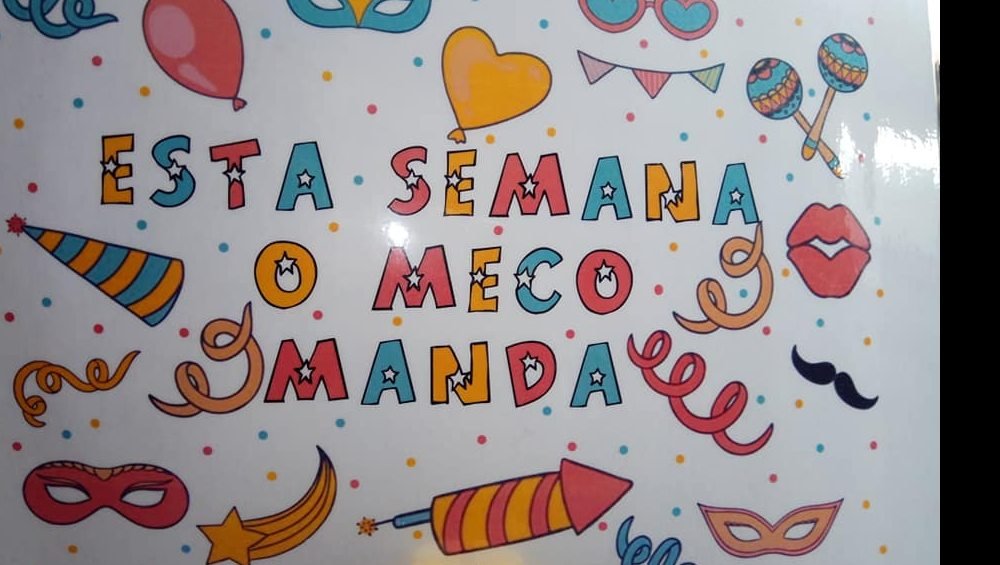 ESTA SEMANA
O MECO
MANDA